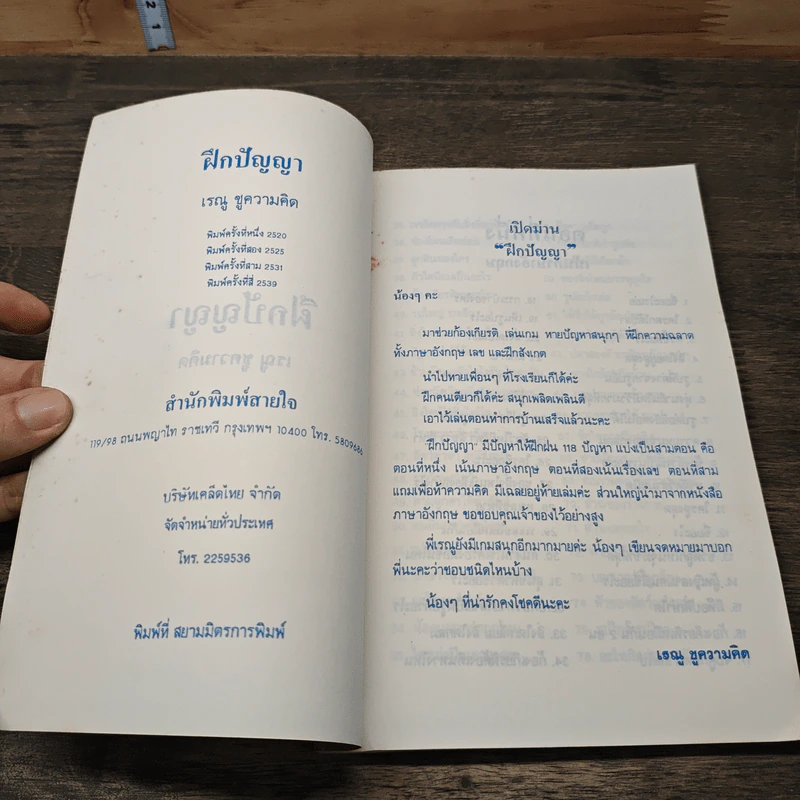 2 1
ฝึกปัญญา
เรณู ชูความคิด
พิมพ์ครั้งที่หนึ่ง 2520
พิมพ์ครั้งที่สอง 2525
พิมพ์ครั้งที่สาม 2531
พิมพ์ครั้งที่สี่ 2539
สำนักพิมพ์สายใจ
119/98 ถนนพญาไท ราชเทวี กรุงเทพฯ 10400 โทร. 5809686
บริษัทเคล็ดไทย จำกัด
จัดจำหน่ายทั่วประเทศ
โทร. 2259536
พิมพ์ที่ สยามมิตรการพิมพ์
เปิดม่าน
“ฝึกปัญญา”
น้องๆ คะ
มาช่วยก้องเกียรติ เล่นเกม ทายปัญหาสนุกๆ ที่ฝึกความฉลาด
ทั้งภาษาอังกฤษ เลข และฝึกสังเกต
นำไปทายเพื่อนๆ ที่โรงเรียนก็ได้ค่ะ
ฝึกคนเดียวก็ได้ค่ะ สนุกเพลิดเพลินดี
เอาไว้เล่นตอนทำการบ้านเสร็จแล้วนะคะ
“ฝึกปัญญา” มีปัญหาให้ฝึกฝน 118 ปัญหา แบ่งเป็นสามตอน คือ
ตอนที่หนึ่ง เน้นภาษาอังกฤษ ตอนที่สองเน้นเรื่องเลข ตอนที่สาม
แถมเพื่อท้าความคิด มีเฉลยอยู่ท้ายเล่มค่ะ ส่วนใหญ่นำมาจากหนังสือ
ภาษาอังกฤษ ขอขอบคุณเจ้าของไว้อย่างสูง
พี่เรณูยังมีเกมสนุกอีกมากมายค่ะ น้องๆ เขียนจดหมายมาบอก
พี่นะคะว่าชอบชนิดไหนบ้าง
น้องๆ ที่น่ารักคงโชคดีนะคะ
เรณู ชูความคิด